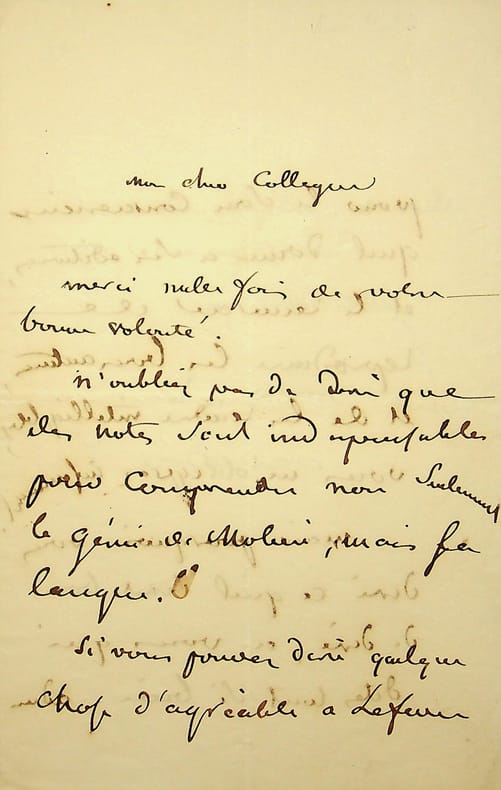 mon cher Collegue
merci mille fois de votre
bonne volonté.
n'oubliez pas de dire que
des notes sont indispensables
pour comprendre non seulement
le génie de Moliere, mais sa
langue.
Si vous pouvez dire quelque
chose d'agréable a Lefevre